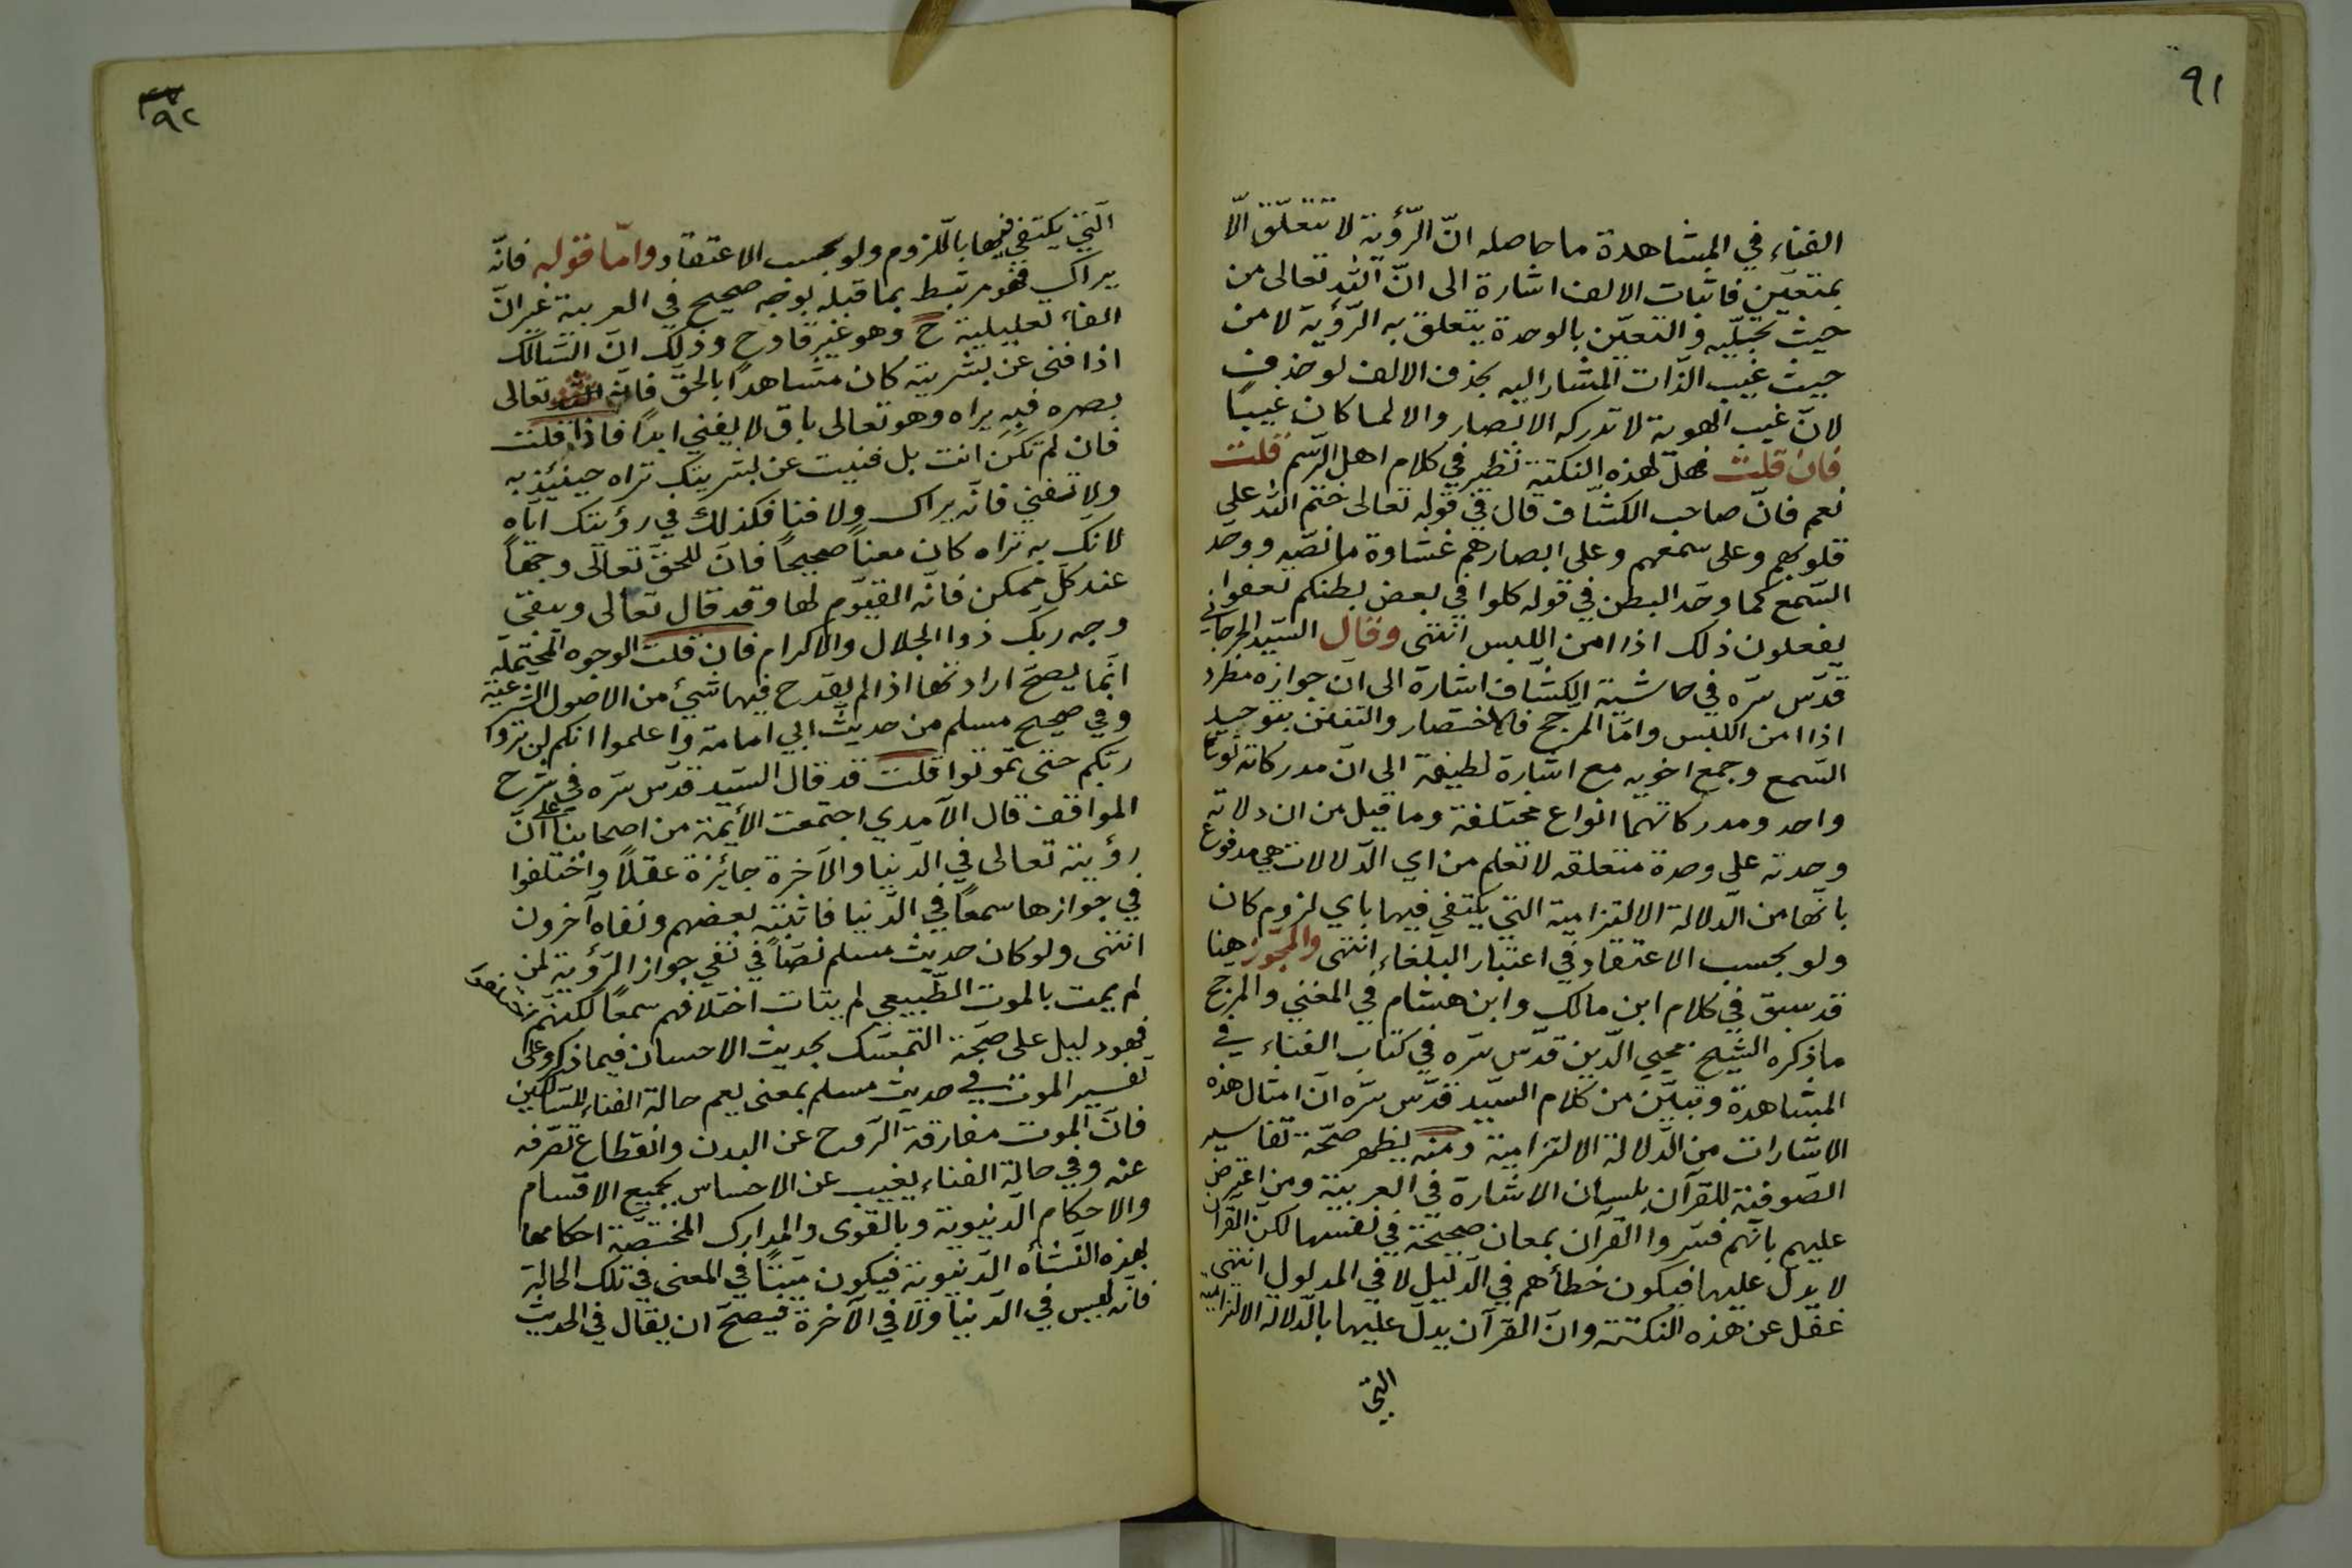 ٩١
الفناء في المشاهدة ما حاصله انّ الرّؤية لا تتعلّق الّا
بمتعيّن فاثبات الالف اشارة الى انّ اللّه تعالى من
حيث تجلّيه والتعيّن بالوحدة يتعلق به الرّؤية لا من
حيث غيب الذّات المشار اليه بحذف الالف لو حذف
لانّ غيب الهوية لا تدركه الابصار والا لما كان غيبًا
فان قلت فهل لهذه النكتة نظير في كلام اهل الرّسم قلت
نعم فانّ صاحب الكشّاف قال في قوله تعالى ختم اللّه على
قلوبهم وعلى سمعهم وعلى ابصارهم غشاوة ما نصّه ووحّد
السّمع كما وحّد البطن في قوله كلوا في بعض بطنكم تعفوا
يفعلون ذلك اذا امن اللبس انتهى وقال السّيد الجرجاني
قدّس سرّه في حاشية الكشّاف اشارة الى انّ جوازه مطرد
اذا امن اللبس وامّا المرجّح فالاختصار والتفنن بتوحيد
السّمع وجمع اخويه مع اشارة لطيفة الى انّ مدركاته نوعًا
واحد ومدركاتهما انواع مختلفة وما قيل من ان دلالة
وحدته على وحدة متعلقه لا تعلم من اي الدّلالات هي مدفوع
بانّها من الدّلالة الالتزامية التي يكتفي فيها باي لزوم كان
ولو بحسب الاعتقاد في اعتبار البلغاء انتهى والمجوّز هنا
قد سبق في كلام ابن مالك وابن هشام في المغني والمرجّح
ما ذكره الشّيخ محيي الدّين قدّس سرّه في كتاب الفناء في
المشاهدة وتبيّن من كلام السّيد قدّس سرّه انّ امثال هذه
الاشارات من الدّلالة الالتزامية ومنه يظهر صحّة تفاسير
الصّوفية للقرآن بلسان الاشارة في العربية ومن اعترض
عليهم بانّهم فسّروا القرآن بمعان صحيحة في نفسها لكنّ القرآن
لا يدلّ عليها فيكون خطأهم في الدّليل لا في المدلول انتهى
غفل عن هذه النكتة وانّ القرآن يدلّ عليها بالدّلالة الالتزامية
التي
٩٢
الّتي يكتفي فيها باللّزوم ولو بحسب الاعتقاد وامّا قوله فانّه
يراك فهو مرتبط بما قبله بوجه صحيح في العربية غير انّ
الفاء تعليلية ح وهو غير قادح وذلك انّ السّالك
اذا فنى عن بشريته كان مشاهدًا بالحقّ فانّه تعالى
بصره فبه يراه وهو تعالى باق لا يفني ابدًا فاذا قلت
فان لم تكن انت بل فنيت عن بشريتك تراه حينئذ به
ولا تفني فانّه يراك ولا فنا فكذلك في رؤيتك ايّاه
لانّك به تراه كان معناً صحيحاً فانّ للحقّ تعالى وجهاً
عند كلّ ممكن فانّه القيّوم لها وقد قال تعالى ويبقى
وجه ربّك ذوا الجلال والاكرام فان قلت الوجوه المحتملة
انّما يصحّ ارادتها اذا لم يقدح فيها شيء من الاصول الشرعية
وفي صحيح مسلم من حديث ابي امامة واعلموا انكم لن تروا
ربّكم حتى تموتوا قلت قد قال السّيد قدّس سرّه في شرح
المواقف قال الآمدي اجتمعت الأئمة من اصحابنا على انّ
رؤيته تعالى في الدّنيا والآخرة جائزة عقلاً واختلفوا
في جوازها سمعاً في الدّنيا فاثبته بعضهم ونفاه آخرون
انتهى ولو كان حديث مسلم نصّاً في نفي جواز الرّؤية لمن
لم يمت بالموت الطّبيعي لم يتات اختلافهم سمعًا لكنّهم
فهو دليل على صحّة التمسّك بحديث الاحسان فيما ذكر وعلى
تفسير الموت في حديث مسلم بمعنى يعم حالة الفناء للسّالكين
فانّ الموت مفارقة الرّوح عن البدن وانقطاع تصرّفه
عنه وفي حالة الفناء يغيب عن الاحساس بجميع الاقسام
والاحكام الدّنيوية وبالقوى والمدارك المختصّة احكامها
بهذه النّشأه الدّنيوية فيكون ميّتًا في المعنى في تلك الحالة
فانّه ليس في الدّنيا ولا في الآخرة فيصحّ ان يقال في الحديث